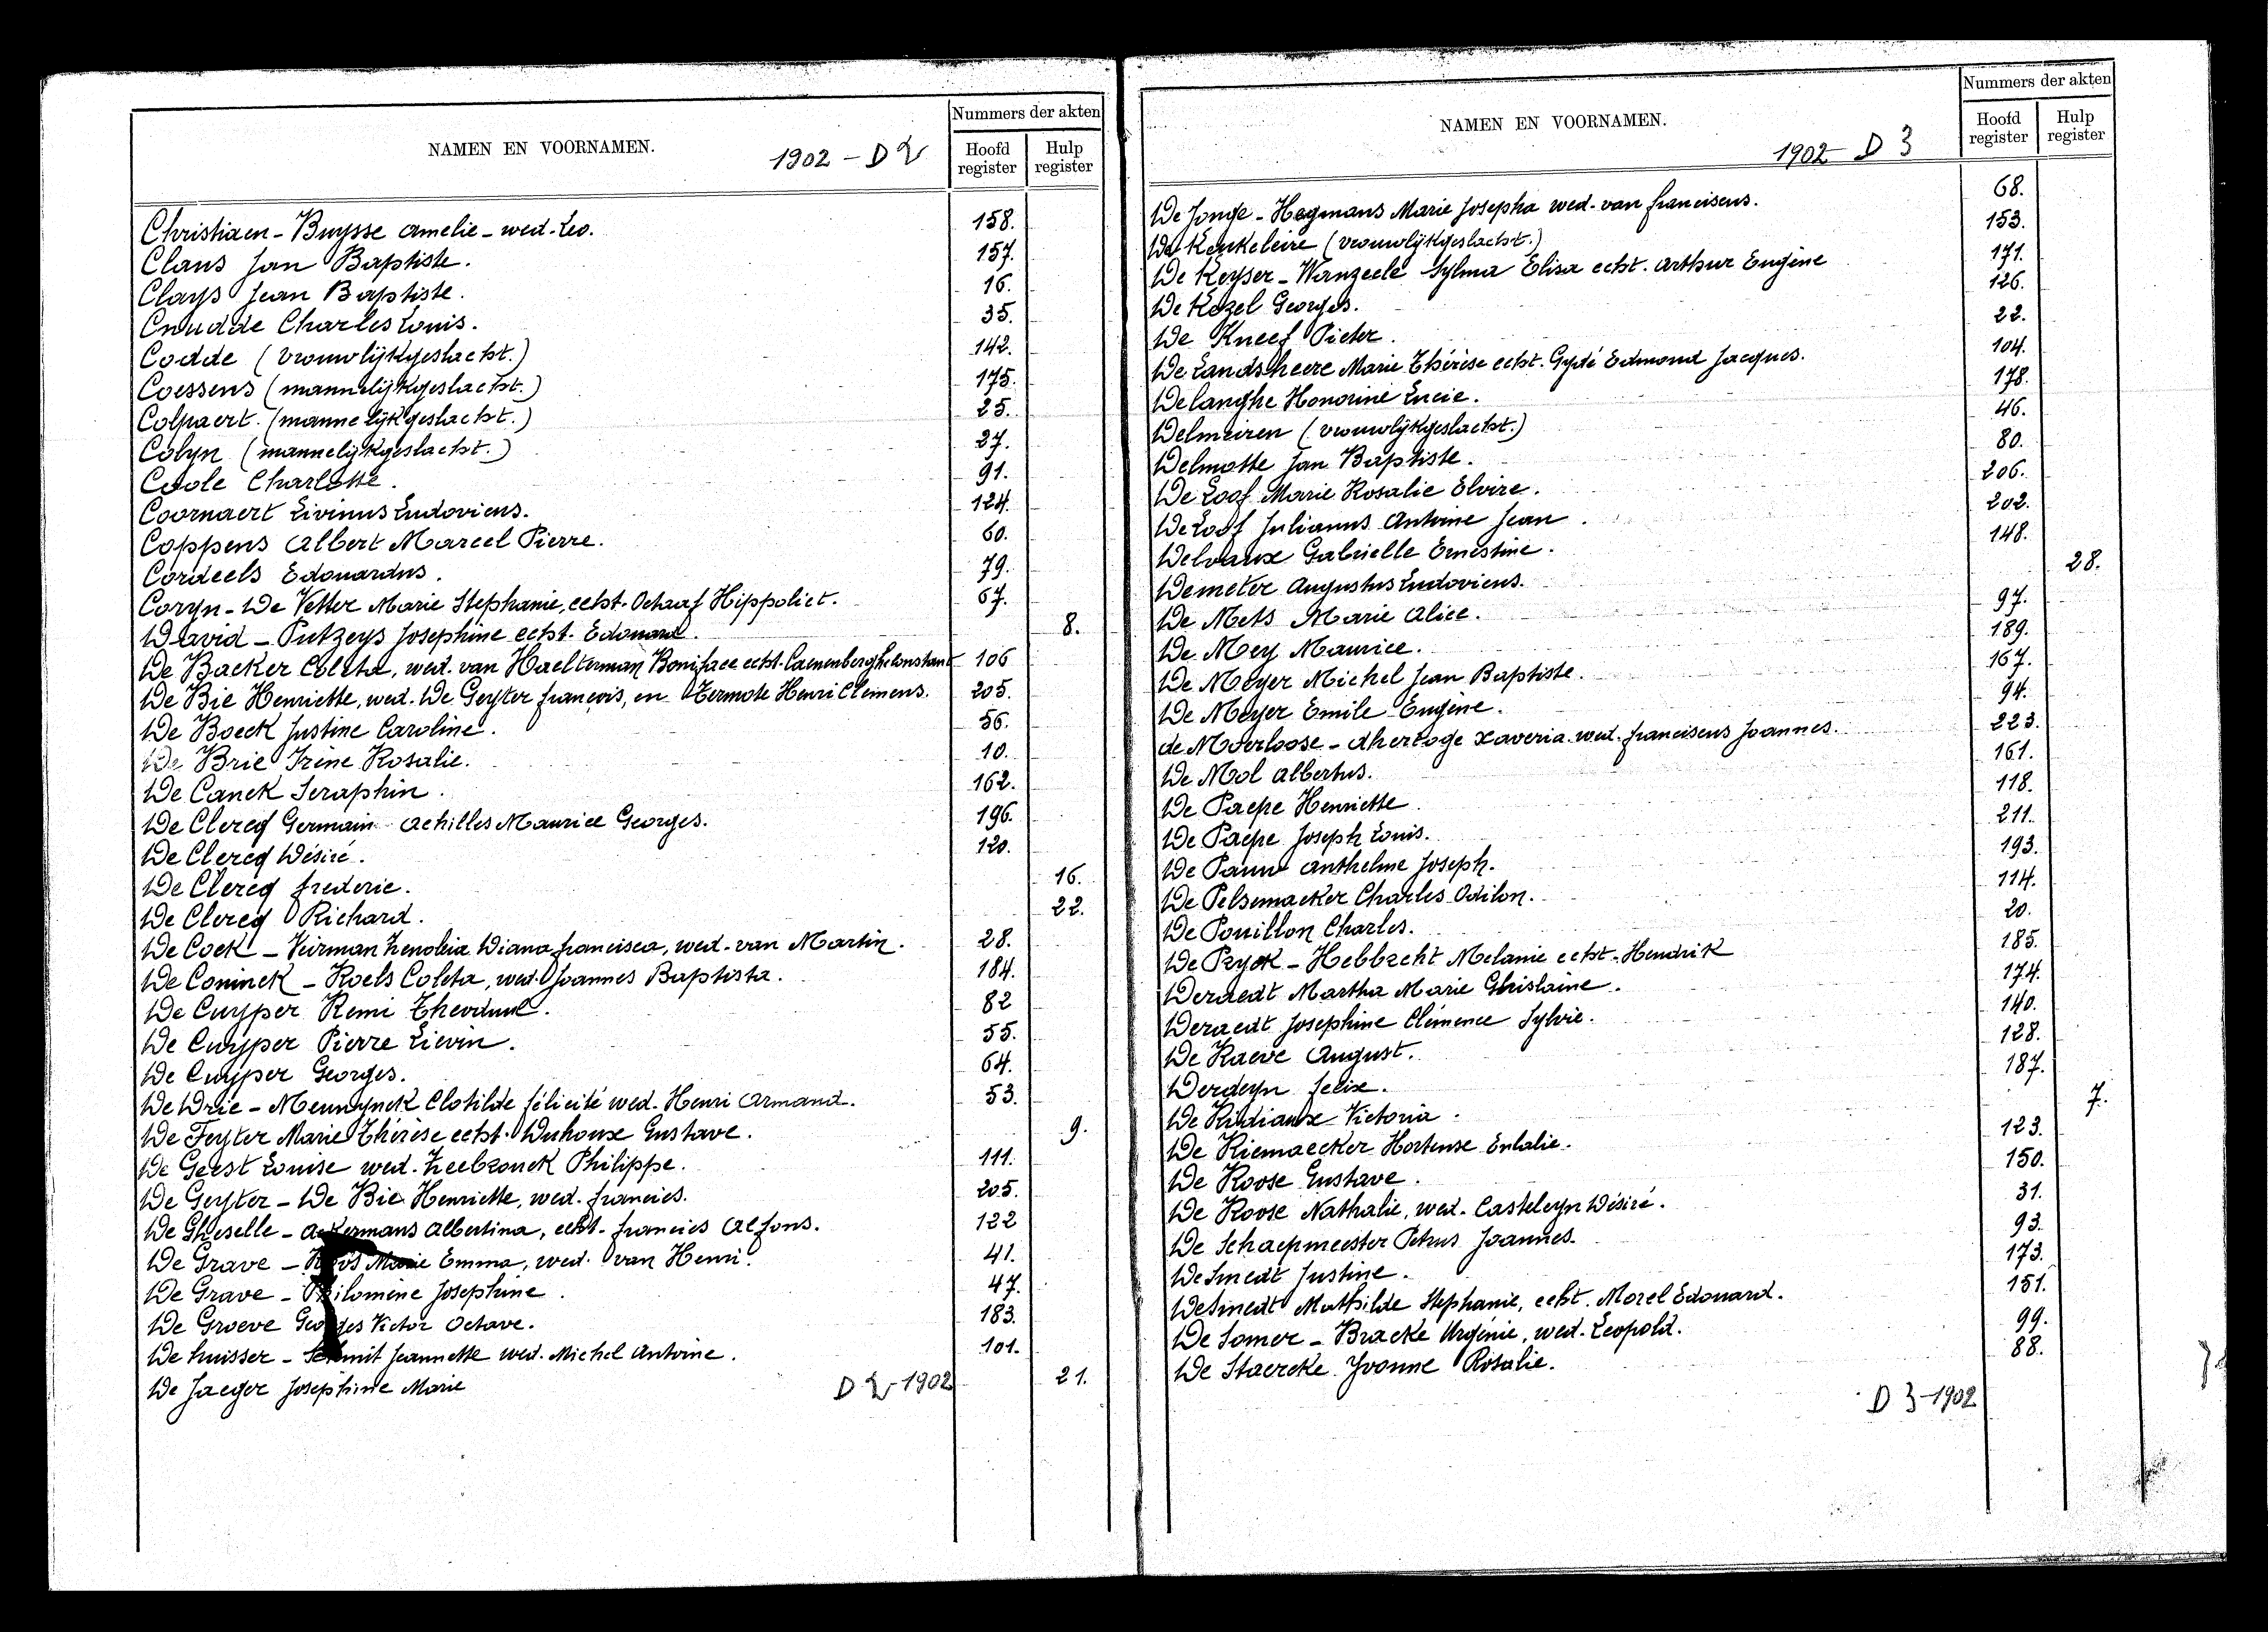 NAMEN EN VOORNAMEN.
1902 - D 2
Nummers der akten
Hoofd register
Hulp register
Christiaen - Buysse Amelie - wed. Leo. 158.
Claus Jan Baptiste. 157.
Clays Jean Baptiste. 16.
Cnudde Charles Louis. 35.
Codde (vrouwlijkgeslacht.) 142.
Coessens (mannelijkgeslacht.) 175.
Colpaert. (mannelijkgeslacht.) 25.
Colyn (mannelijkgeslacht.) 27.
Coole Charlotte. 91.
Coornaert Livinus Ludovicus. 124.
Coppens Albert Marcel Pierre. 60.
Cordeels Edouardus. 79.
Coryn - De Vetter Marie Stephanie, echt. Octaaf Hippoliet. 67.
David - Putzeys Josephine echt. Edouard. 8.
De Backer Coleta, wed. van Haelterman Boniface echt. Caenenberghe Constant 106
De Bie Henriette, wed. De Geyter françois, en Termote Henri Clemens. 205.
De Boeck Justine Caroline. 56.
De Brie Irène Rosalie. 10.
De Canck Seraphin. 162.
De Clercq Germain Achilles Maurice Georges. 196.
De Clercq Désiré. 120.
De Clercq frederic. 16.
De Clercq Richard. 22.
De Cock - Veirman Zenobia Diana francisca, wed. van Martin. 28.
De Coninck - Roels Coleta, wed. Joannes Baptista. 184.
De Cuyper Remi Theoduul. 82
De Cuyper Pierre Lievin. 55.
De Cuyper Georges. 64.
De Drie - Meunynck Clotilde félicité wed. Henri Armand. 53.
De Feyter Marie Thérèse echt. Duhoux Gustave. 9.
De Geest Louise wed. Zeebrouck Philippe. 111.
De Geyter - De Bie Henriette, wed. francies. 205.
De Gheselle - Ackermans Albertina, echt. francies Alfons. 122
De Grave - Marie Emma, wed. van Henri. 41.
De Grave - Philomène Josephine. 47.
De Groeve Georges Victor Octave. 183.
De huisser - Schmit Jeannette wed. Michel Antoine. 101.
De Jaeger Josephine Marie 21.
D 2 - 1902
NAMEN EN VOORNAMEN.
1902 - D 3
Nummers der akten
Hoofd register
Hulp register
De Jonge - Hegmans Marie Josepha wed. van franciscus. 68.
De Keukeleire (vrouwlijkgeslacht.) 153.
De Keyser - Wanzeele Sylma Elisa echt. Arthur Eugène 171.
De Kezel Georges. 126.
De Kneef Pieter. 22.
De Landsheere Marie Thérèse echt. Gydé Edmond Jacques. 104.
Delanghe Honorine Lucie. 178.
Delmeiren (vrouwlijkgeslacht.) 46.
Delmotte Jan Baptiste. 80.
De Loof Marie Rosalie Elvire. 206.
De Loof Julianus Antoine Jean. 202.
Delvaux Gabrielle Ernestine. 148.
Demeter Augustus Ludovicus. 28.
De Mets Marie Alice. 97.
De Mey Maurice. 189.
De Meyer Michel Jean Baptiste. 167.
De Meyer Emile Eugène. 94.
de Moerloose - dhertoge Xaveria wed. franciscus Joannes. 223.
De Mol Albertus. 161.
De Paepe Henriette. 118.
De Paepe Joseph Louis. 211.
De Pauw Anthelme Joseph. 193.
De Pelsemaeker Charles Odilon. 114.
De Pouillon Charles. 20.
De Pryck - Hebbrecht Melanie echt. Hendrik 185.
Deraedt Martha Marie Ghislaine. 174.
Deraedt Josephine Clémence Sylvie. 140.
De Raeve August. 128.
Derdeyn felix. 187.
De Ridiaux Victoria. 7.
De Riemaecker Hortense Eulalie. 123.
De Roose Gustave. 150.
De Roose Nathalie, wed. Casteleyn Désiré. 31.
De Schaepmeester Petrus Joannes. 93.
De Smedt Justine. 173.
De Smedt Mathilde Stephanie, echt. Morel Edouard. 151.
De Somer - Bracke Virginie, wed. Leopold. 99.
De Staercke Yvonne Rosalie. 88.
D 3 - 1902